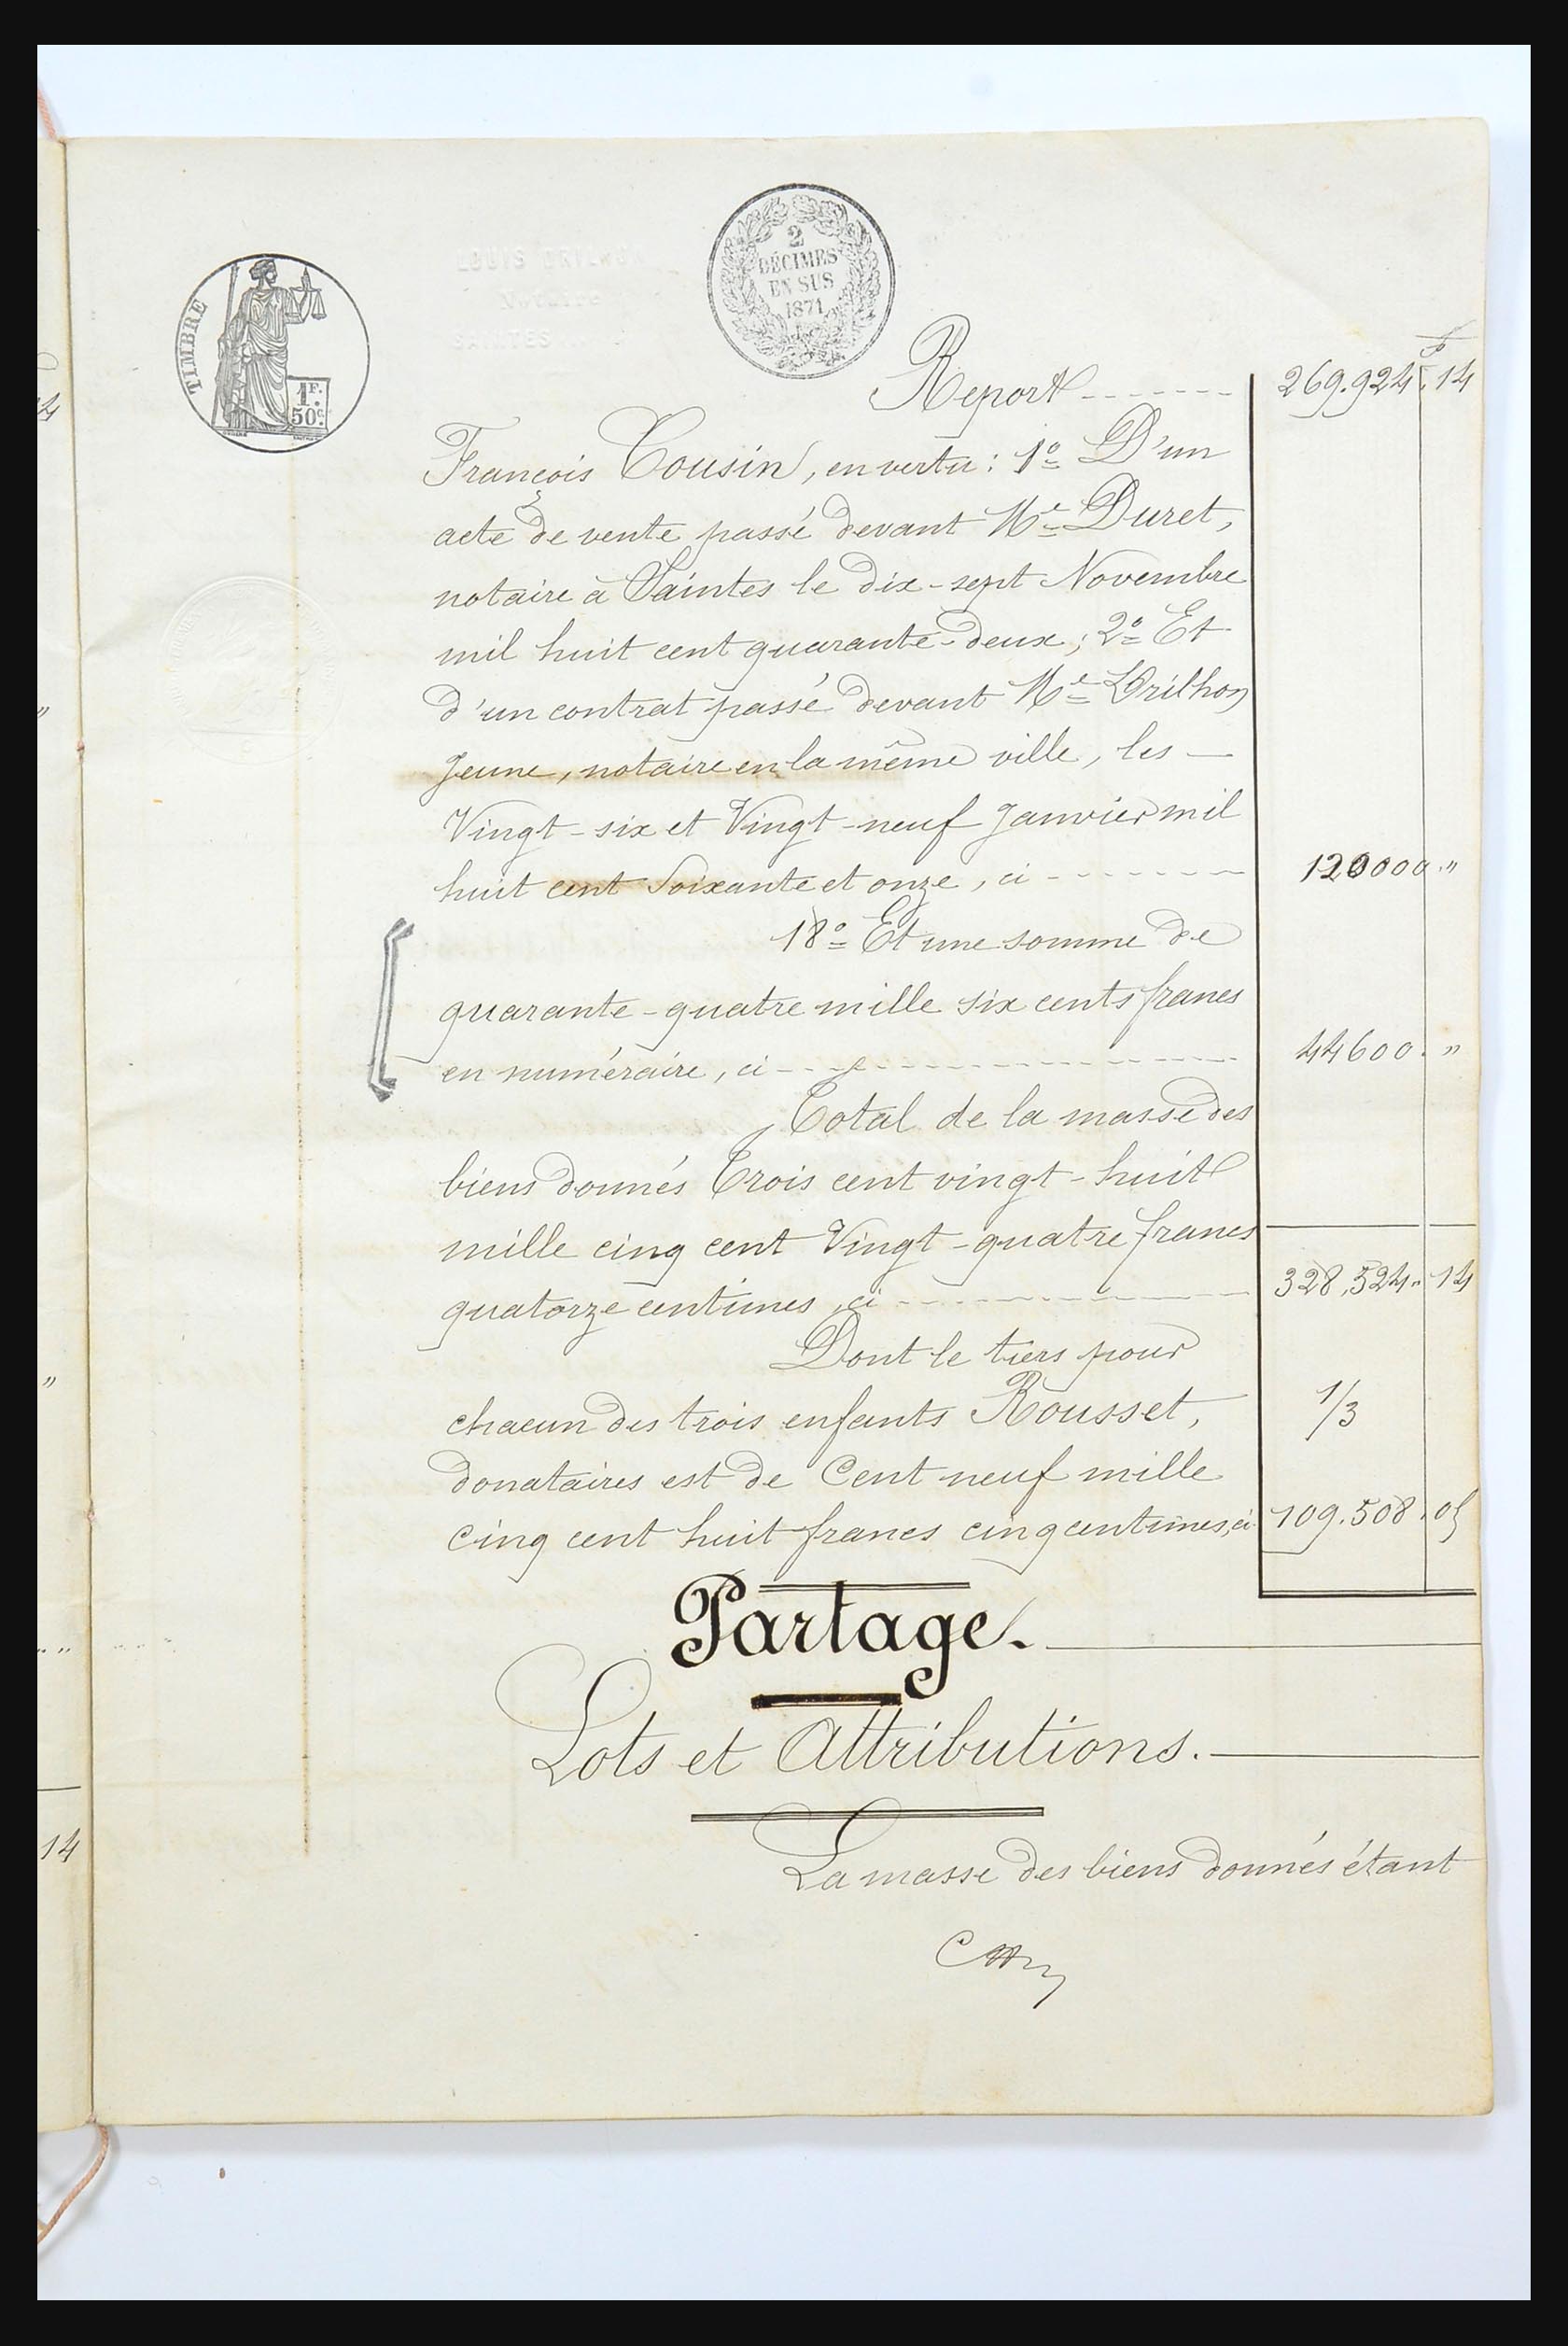 LOUIS DRILHON
Notaire
SAINTES
TIMBRE
1F.
50c.
2
DÉCIMES
EN SUS
1871
Report 269.924 . 14
François Cousin, en vertu : 1o D'un
acte de vente passé devant Me Duret,
notaire à Saintes le dix-sept Novembre
mil huit cent quarante-deux ; 2o Et
d'un contrat passé devant Me Drilhon
jeune, notaire en la même ville, les —
Vingt-six et Vingt-neuf Janvier mil
huit cent Soixante et onze, ci 120000 . "
18o Et une somme de
quarante-quatre mille six cents francs
en numéraire, ci 44600 . "
Total de la masse des
biens donnés Trois cent vingt-huit
mille cinq cent Vingt-quatre francs
quatorze centimes, ci 328,524 . 14
Dont le tiers pour
chacun des trois enfants Rousset, 1/3
donataires est de Cent neuf mille
cinq cent huit francs cinq centimes, ci 109.508 . 05
Partage.
Lots et Attributions.
La masse des biens donnés étant
14